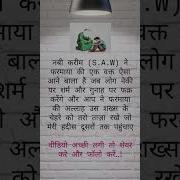 नबी करीम (S.A.W) ने
फरमाया की एक वक़्त ऐसा
आने बाला है जब लोग नेकी
पर शर्म और गुनाह पर फक्र
करेंगे और आप ने फरमाया
की अल्लाह उस शख्स के
चेहरे को तरो ताज़ा रखे जो
मेरी हदीस दूसरों तक पहुंचाए
वीडियो अच्छी लगी तो शेयर
करे और फॉलो करें..!